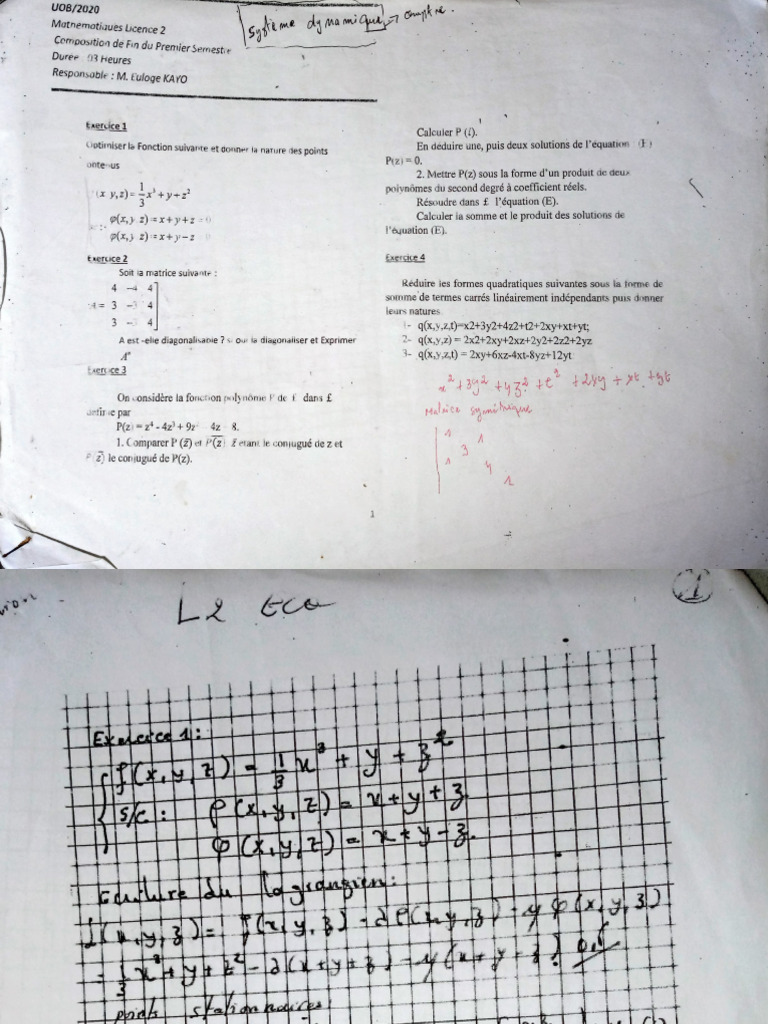 UOB/2020
Mathematiques Licence 2
Composition de Fin du Premier Semestre
Duree 03 Heures
Responsable : M. Euloge KAYO
Système dynamique → compte.
Exercice 1
Optimiser la Fonction suivante et donner la nature des points
obtenus
(x y,z) = 1/3 x³ + y + z²
φ(x, y z) = x + y + z = 0
φ(x, y z) = x + y − z 0
Exercice 2
Soit la matrice suivante :
4 -4 4
A = 3 -3 4
3 -3 4
A est -elle diagonalisable ? si oui la diagonaliser et Exprimer
Aⁿ
Exercice 3
On considère la fonction polynôme P de £ dans £
définie par
P(z) = z⁴ - 4z³ + 9z² 4z 8.
1. Comparer P (z̄) et P(z) z̄ étant le conjugué de z et
P(z) le conjugué de P(z).
Calculer P (i).
En déduire une, puis deux solutions de l'équation (E)
P(z) = 0.
2. Mettre P(z) sous la forme d'un produit de deux
polynômes du second degré à coefficient réels.
Résoudre dans £ l'équation (E).
Calculer la somme et le produit des solutions de
l'équation (E).
Exercice 4
Réduire les formes quadratiques suivantes sous la forme de
somme de termes carrés linéairement indépendants puis donner
leurs natures
1- q(x,y,z,t)=x2+3y2+4z2+t2+2xy+xt+yt;
2- q(x,y,z) = 2x2+2xy+2xz+2y2+2z2+2yz
3- q(x,y,z,t) = 2xy+6xz-4xt-8yz+12yt
x² + 3y² + 4z² + t² + 2xy + xt + yt
Matrice symétrique
1 1
3
1 4
1
1
L2 ECO
1
Exercice 1:
f(x,y,z) = 1/3 x³ + y + z²
S/C : φ(x,y,z) = x+y+z
φ(x,y,z) = x+y-z.
Ecriture du lagrangien:
L(x,y,z) = f(x,y,z) - λφ(x,y,z) - γφ(x,y,z)
= 1/3 x³ + y + z² - λ(x+y+z) - γ(x+y-z) 0,5
points stationnaires